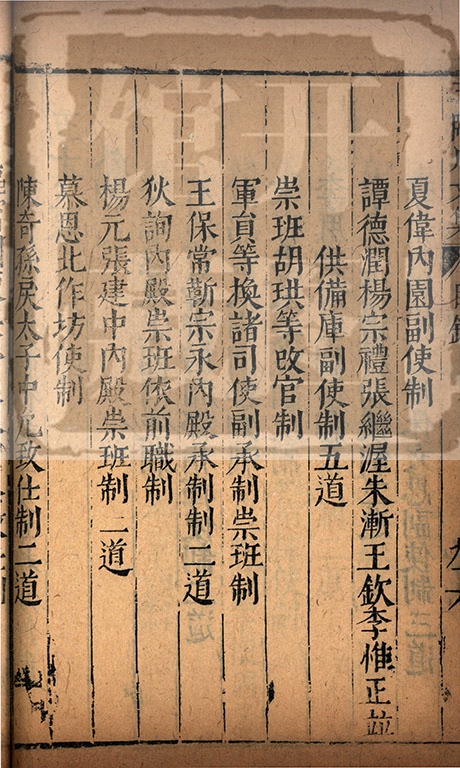 夏偉內園副使制
譚德潤楊宗禮張繼渥朱漸王欽李惟正並
供備庫副使制五道
崇班胡珙等改官制
軍員等換諸司使副承制崇班制
王保常勒宗永內殿承制制二道
狄詢內殿崇班依前職制
楊元張建中內殿崇班制一道
慕恩北作坊使制
陳奇孫戾太子中允致仕制二道